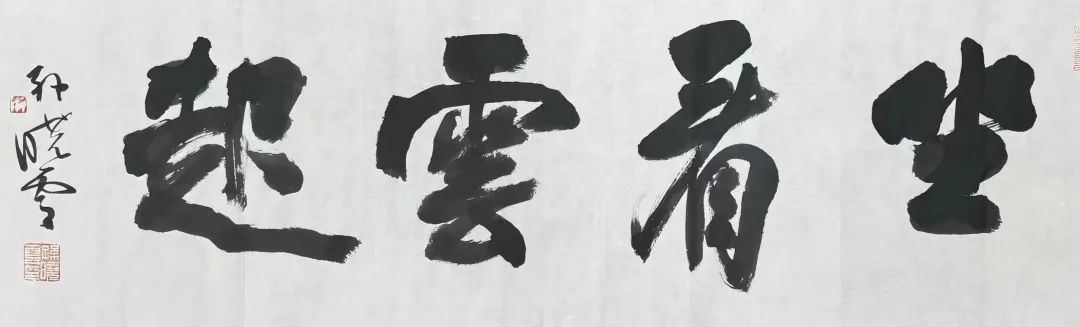 坐看雲起
孙晓雲